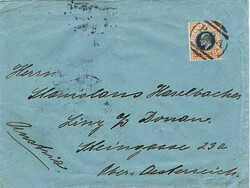 Herrn
Stanislaus Haselbacher
Linz a/ Donau.
Steingasse 23a
Ober-Oesterreich
Austria